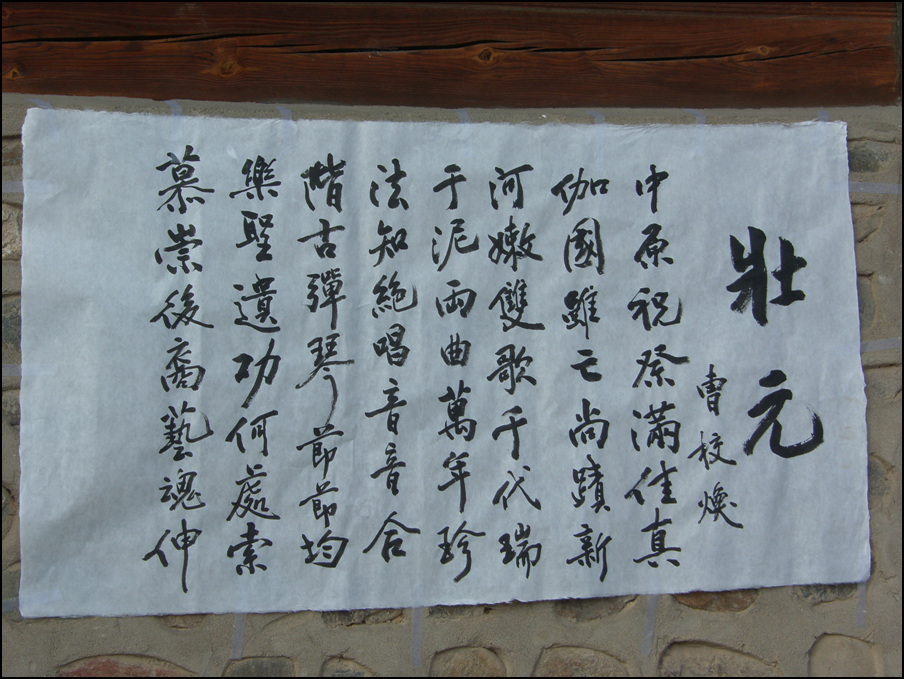 壯元
曺校煥
中原祝祭滿佳真
伽國雖亡尚蹟新
河嫩雙歌千代瑞
于泥兩曲萬年珍
法知絶唱音音合
階古彈琴節節均
樂聖遺功何處索
慕崇後裔藝魂伸